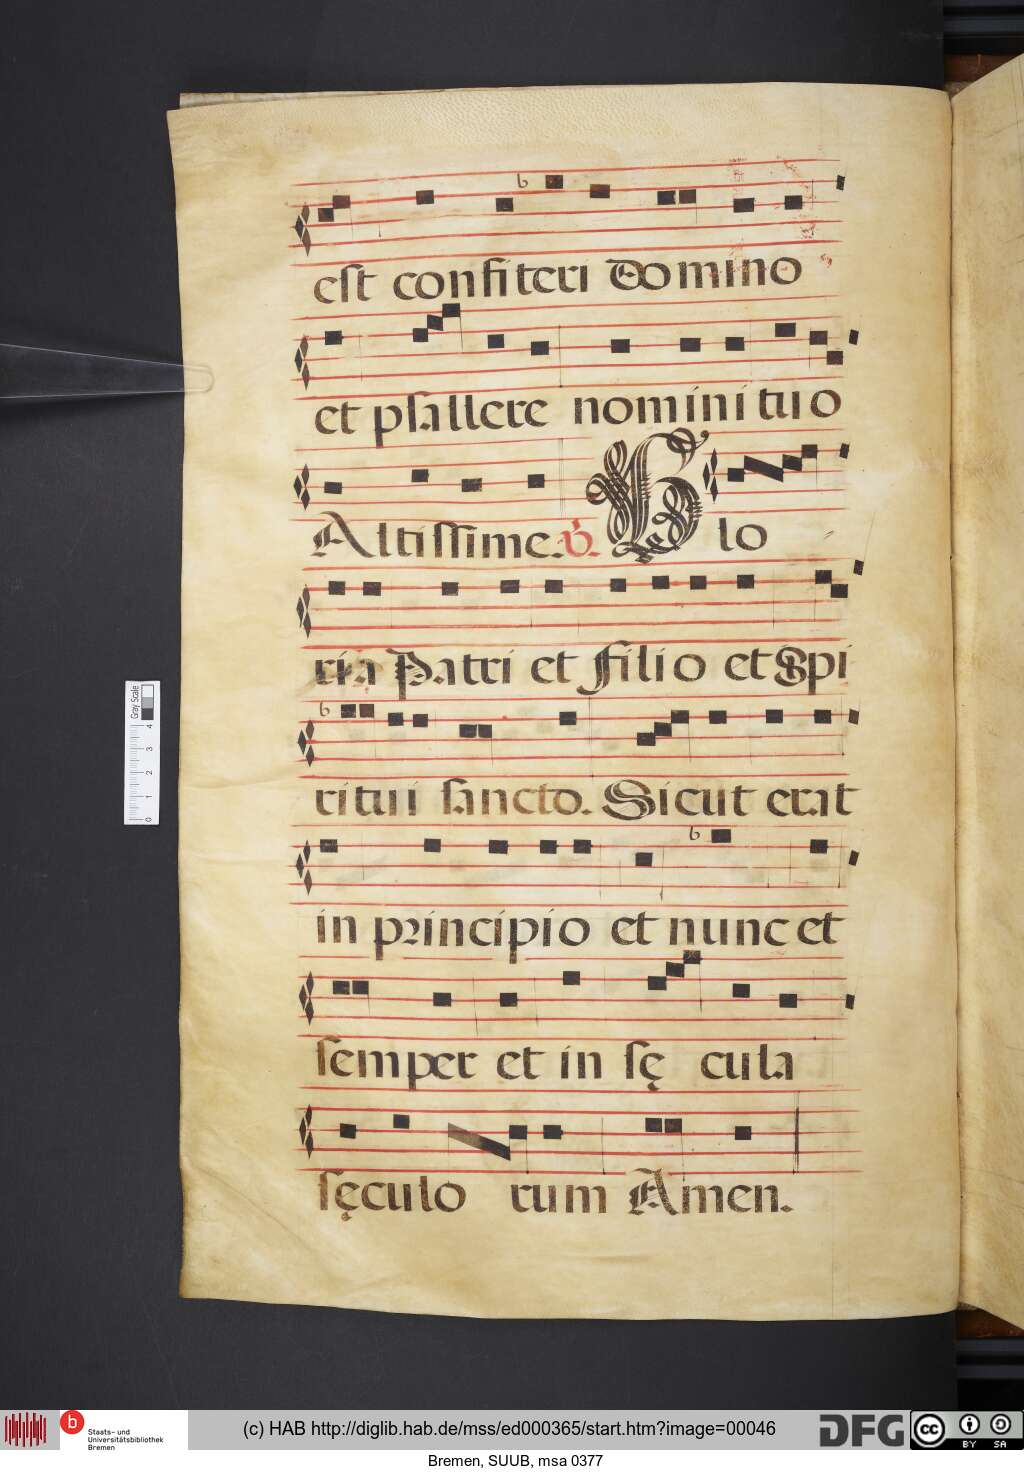 b
est confiteri Domino
et psallere nomini tuo
Altissime. V. Glo
ria Patri et Filio et Spi
b
ritui sancto. Sicut erat
b
in principio et nunc et
semper et in sę cula
sęculo rum Amen.
Gray Scale
4 3 2 1 0
b
Staats- und
Universitätsbibliothek
Bremen
(c) HAB http://diglib.hab.de/mss/ed000365/start.htm?image=00046
DFG
cc BY SA
Bremen, SUUB, msa 0377